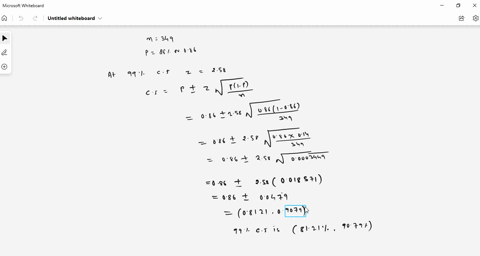 Microsoft Whiteboard
Untitled whiteboard
n = 349
P = 86% or 0.86
At 99% C.I z = 2.58
C.I = P ± z √(P(1-P)/n)
= 0.86 ± 2.58 √(0.86(1-0.86)/349)
= 0.86 ± 2.58 √(0.86 x 0.14/349)
= 0.86 ± 2.58 √0.0003449
= 0.86 ± 2.58 (0.018571)
= 0.86 ± 0.0479
= (0.8121, 0.9079)
99% C.I is (81.21%, 90.79%)